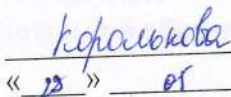 Королькова
« 28 » 05